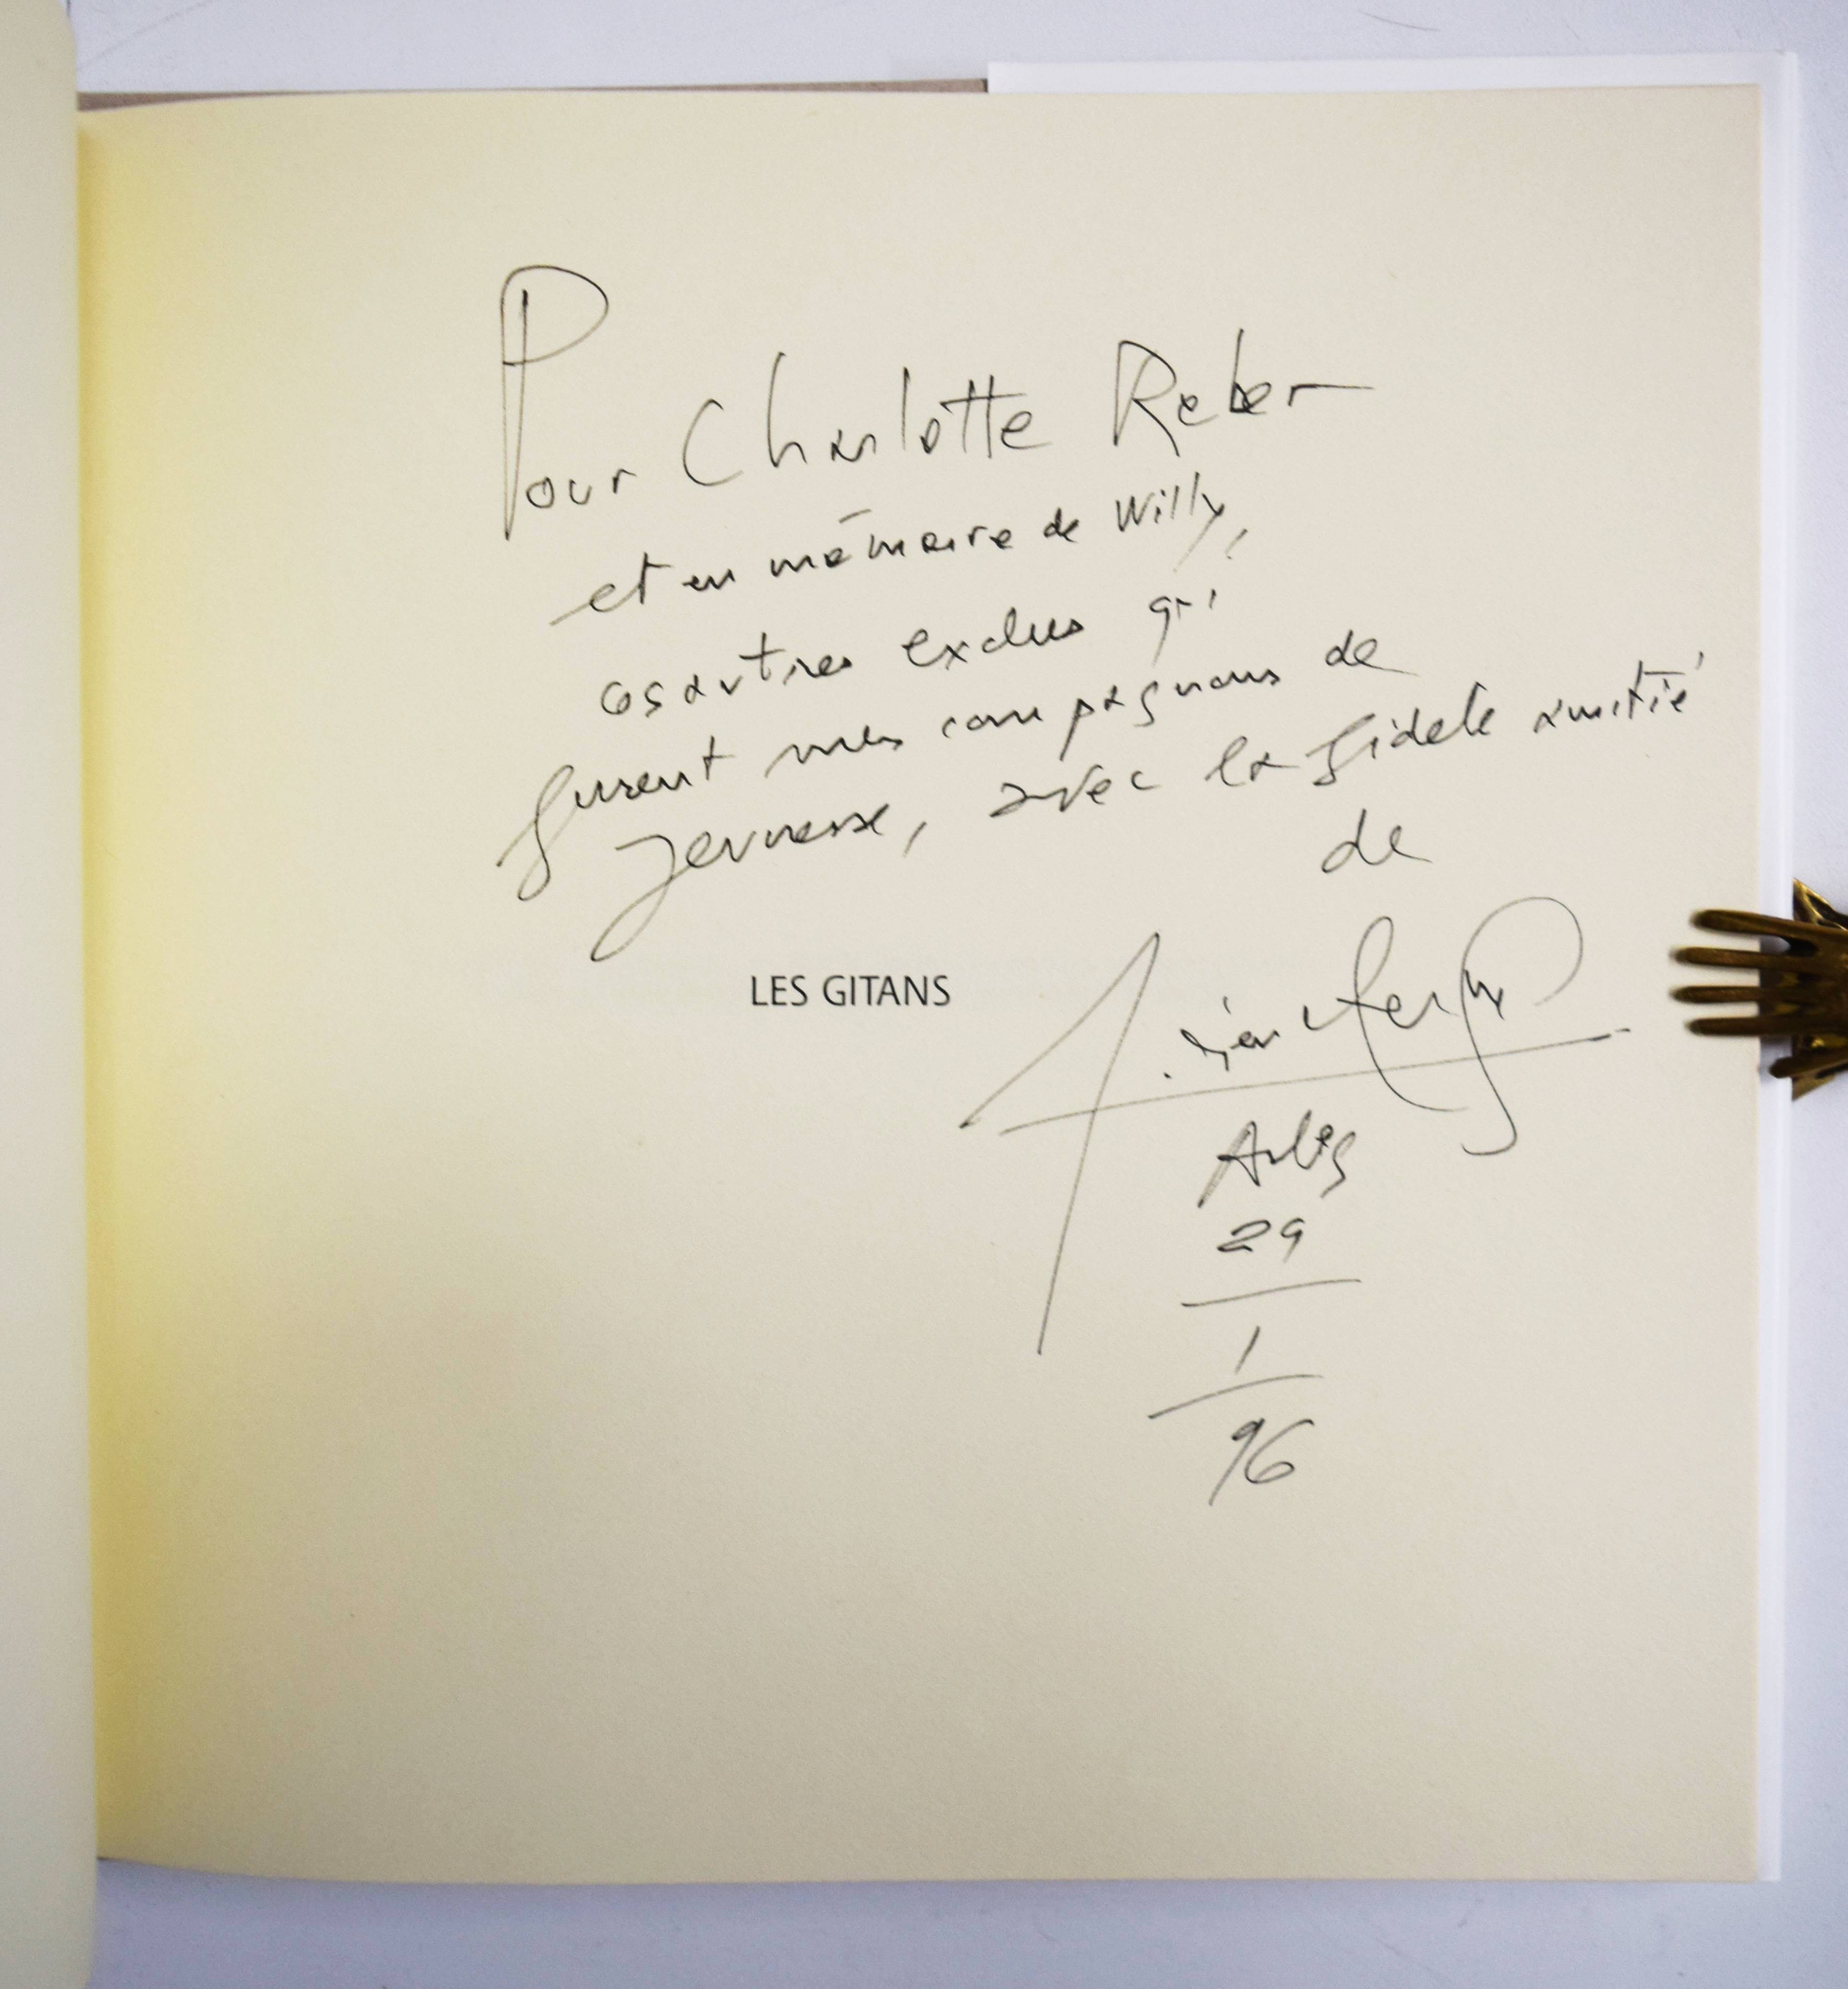 Pour Charlotte Reber
et en mémoire de Willy,
ces autres exclus qui
furent mes compagnons de
jeunesse, avec la fidele amitié
de
LES GITANS
Lucien Clergue
Arles
29
1
96